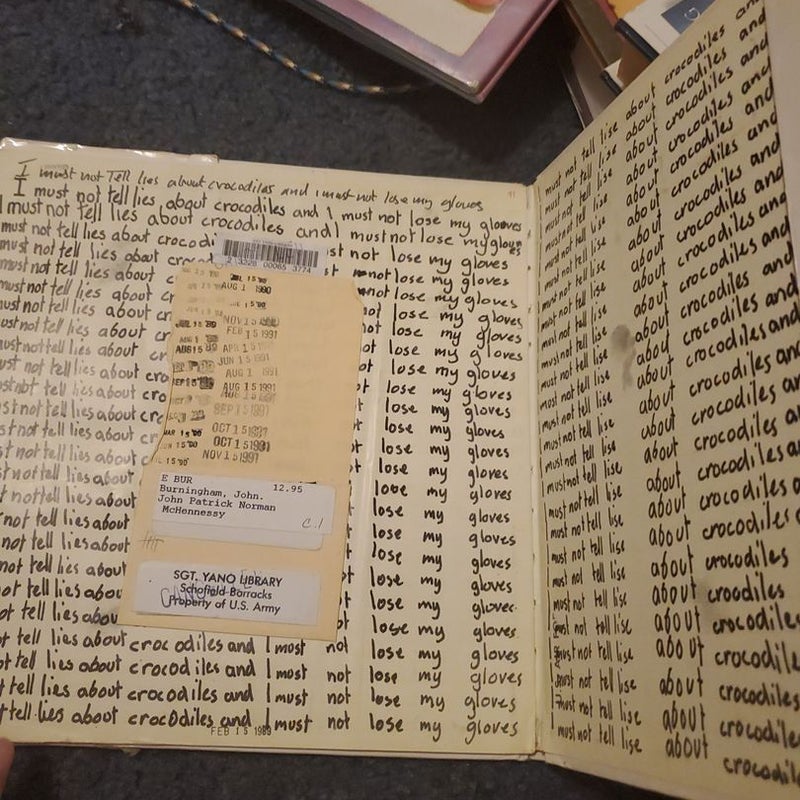 I must not Tell lies about crocodiles and i must not lose my gloves
I must not tell lies about crocodiles and I must not lose my gloves
I must not tell lies about crocodiles and I must not lose my gloves
must not tell lies about crocodi st not lose my gloves
must not tell lies about cro not lose my gloves
must not tell lies about not lose my gloves
must not tell lies about cr not lose my gloves
must not tell lies about cr not lose my gloves
must not tell lies about cr lose my gloves
must not tell lies about cr ot lose my gloves
ust not tell lies about cro lose my gloves
ust not tell lies about cro lose my gloves
st not tell lies about cre lose my gloves
st not tell lies about cr lose my gloves
st not tell lies about lose my gloves
t not tell lies about lose my gloves
t not tell lies about lose my gloves
not tell lies about lose my gloves
not tell lies about lose my gloves
not tell lies about lose my gloves
ot tell lies about lose my gloves
ot tell lies abou lose my gloves
ot tell lies about crocodiles and I most not lose my gloves
ot tell lies about crocodiles and I must not lose my gloves
t tell lies about crocodiles and I must not lose my gloves
tell lies about crocodiles and I must not lose my gloves
FEB 15 1989
2 3320 00065 3774
AUG 1 1990
NOV 15 1990
FEB 15 1991
APR 15 1991
JUN 15 1991
AUG 1 1991
AUG 15 1991
SEP 15 1991
OCT 15 1991
NOV 15 1991
E BUR 12.95
Burningham, John.
John Patrick Norman
McHennessy
C.1
SGT. YANO LIBRARY
Schofield Barracks
Property of U.S. Army
must not tell lise about crocodiles and
must not tell lise about crocodiles and
must not tell lise about crocodiles and
must not tell lise about crocodiles and
must not tell lise about crocodiles and
must not tell lise about crocodiles and
must not tell lise about crocodiles and
must not tell lise about crocodiles and
must not tell lise about crocodiles and
must not tell lise about crocodiles and
must not tell lise about crocodiles and
must not tell lise about crocodiles and
I must not tell lise about crocodiles and
I must not tell lise about crocodiles an
I must not tell lise about crocodiles a
I must not tell lise about crocodiles a
I must not tell lise about crocodiles
I must not tell lise about crocodiles
I must not tell lise about crocodiles
I must not tell lise about crocodiles
I must not tell lise about crocodile
I must not tell lise about crocodil
crocodil